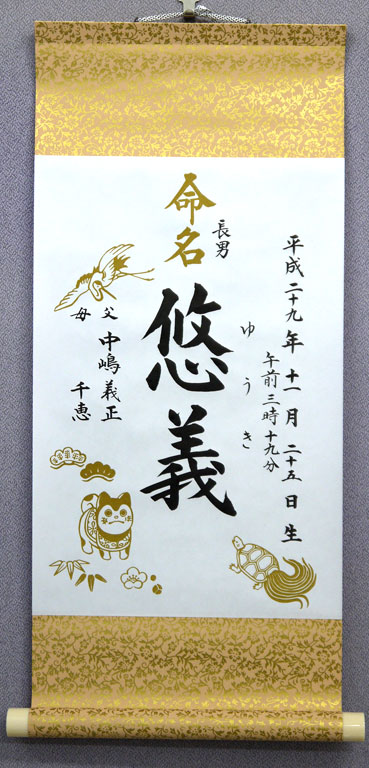 平成二十九年十一月二十五日生
午前三時十九分
命名
長男
ゆうき
悠義
父 中嶋義正
母 千恵